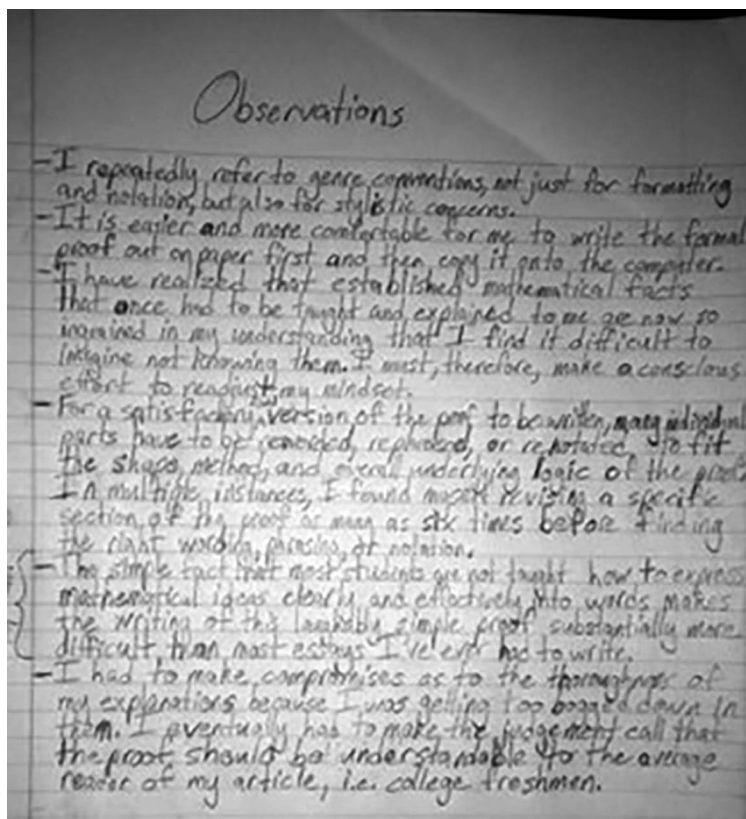 Observations
- I repeatedly refer to genre conventions, not just for formatting
and notation, but also for stylistic concerns.
- It is easier and more comfortable for me to write the formal
proof out on paper first and then copy it onto the computer.
- I have realized that established mathematical facts
that once had to be taught and explained to me are now so
ingrained in my understanding that I find it difficult to
imagine not knowing them. I must, therefore, make a conscious
effort to readjust my mindset.
- For a satisfactory version of the proof to be written, many individual
parts have to be reworded, rephrased, or renotated, to fit
the shape, method, and overall underlying logic of the proof.
In multiple instances, I found myself revising a specific
section of the proof as many as six times before finding
the right wording, phrasing, or notation.
- The simple fact that most students are not taught how to express
mathematical ideas clearly and effectively into words makes
the writing of this laughably simple proof substantially more
difficult than most essays I've ever had to write.
- I had to make compromises as to the thoroughness of
my explanations because I was getting too bogged down in
them. I eventually had to make the judgement call that
the proof should be understandable to the average
reader of my article, i.e. college freshmen.